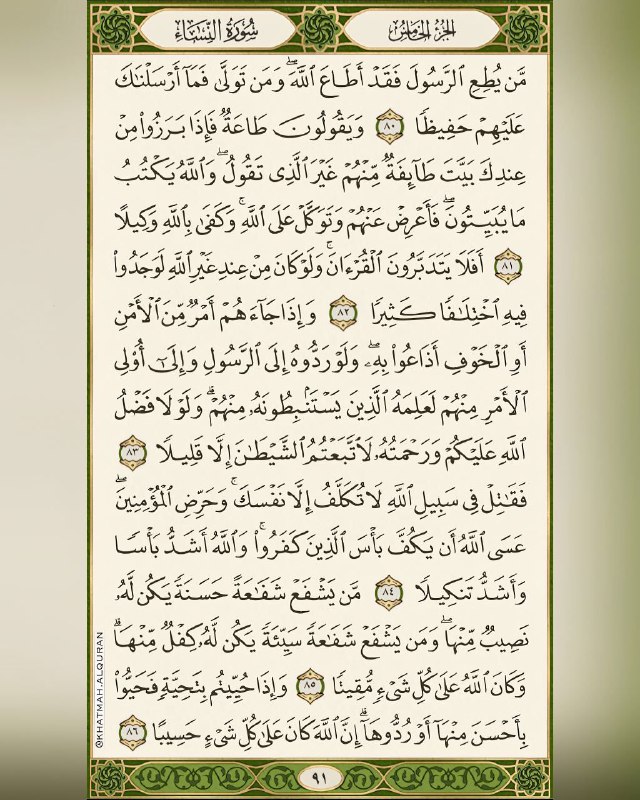 سُورَةُ النِّسَاءِ
الجُزْءُ الخَامِسُ
مَّن يُطِعِ ٱلرَّسُولَ فَقَدْ أَطَاعَ ٱللَّهَۖ وَمَن تَوَلَّىٰ فَمَآ أَرْسَلْنَٰكَ
عَلَيْهِمْ حَفِيظًا ٨٠ وَيَقُولُونَ طَاعَةٌ فَإِذَا بَرَزُوا۟ مِنْ
عِندِكَ بَيَّتَ طَآئِفَةٌ مِّنْهُمْ غَيْرَ ٱلَّذِى تَقُولُۖ وَٱللَّهُ يَكْتُبُ
مَا يُبَيِّتُونَۖ فَأَعْرِضْ عَنْهُمْ وَتَوَكَّلْ عَلَى ٱللَّهِۚ وَكَفَىٰ بِٱللَّهِ وَكِيلًا
٨١ أَفَلَا يَتَدَبَّرُونَ ٱلْقُرْءَانَۚ وَلَوْ كَانَ مِنْ عِندِ غَيْرِ ٱللَّهِ لَوَجَدُوا۟
فِيهِ ٱخْتِلَٰفًا كَثِيرًا ٨٢ وَإِذَا جَآءَهُمْ أَمْرٌ مِّنَ ٱلْأَمْنِ
أَوِ ٱلْخَوْفِ أَذَاعُوا۟ بِهِۦۖ وَلَوْ رَدُّوهُ إِلَى ٱلرَّسُولِ وَإِلَىٰٓ أُو۟لِى
ٱلْأَمْرِ مِنْهُمْ لَعَلِمَهُ ٱلَّذِينَ يَسْتَنۢبِطُونَهُۥ مِنْهُمْۗ وَلَوْلَا فَضْلُ
ٱللَّهِ عَلَيْكُمْ وَرَحْمَتُهُۥ لَٱتَّبَعْتُمُ ٱلشَّيْطَٰنَ إِلَّا قَلِيلًا ٨٣
فَقَٰتِلْ فِى سَبِيلِ ٱللَّهِ لَا تُكَلَّفُ إِلَّا نَفْسَكَۚ وَحَرِّضِ ٱلْمُؤْمِنِينَۖ
عَسَى ٱللَّهُ أَن يَكُفَّ بَأْسَ ٱلَّذِينَ كَفَرُوا۟ۚ وَٱللَّهُ أَشَدُّ بَأْسًا
وَأَشَدُّ تَنكِيلًا ٨٤ مَّن يَشْفَعْ شَفَٰعَةً حَسَنَةً يَكُن لَّهُۥ
نَصِيبٌ مِّنْهَاۖ وَمَن يَشْفَعْ شَفَٰعَةً سَيِّئَةً يَكُن لَّهُۥ كِفْلٌ مِّنْهَاۗ
وَكَانَ ٱللَّهُ عَلَىٰ كُلِّ شَىْءٍ مُّقِيتًا ٨٥ وَإِذَا حُيِّيتُم بِتَحِيَّةٍ فَحَيُّوا۟
بِأَحْسَنَ مِنْهَآ أَوْ رُدُّوهَآۗ إِنَّ ٱللَّهَ كَانَ عَلَىٰ كُلِّ شَىْءٍ حَسِيبًا ٨٦
٩١
@KHATMAH.ALQURAN